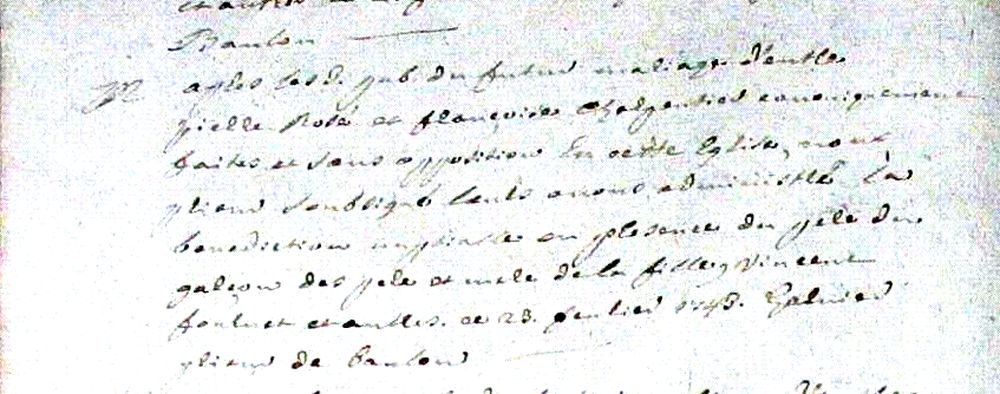 et autres
Baulon
apres les p. pub. du futur mariage d'entre
pierre Rosé et françoise Charpentier canoniquement
faites et sans opposition En cette Eglise, nous
prieur soubsigné leurs avons administré la
benediction nuptialle en presence du pere du
garçon des pere et mere de la fille, vincent
et autres. ce 23. feuvrier 1743.
prieur de baulon